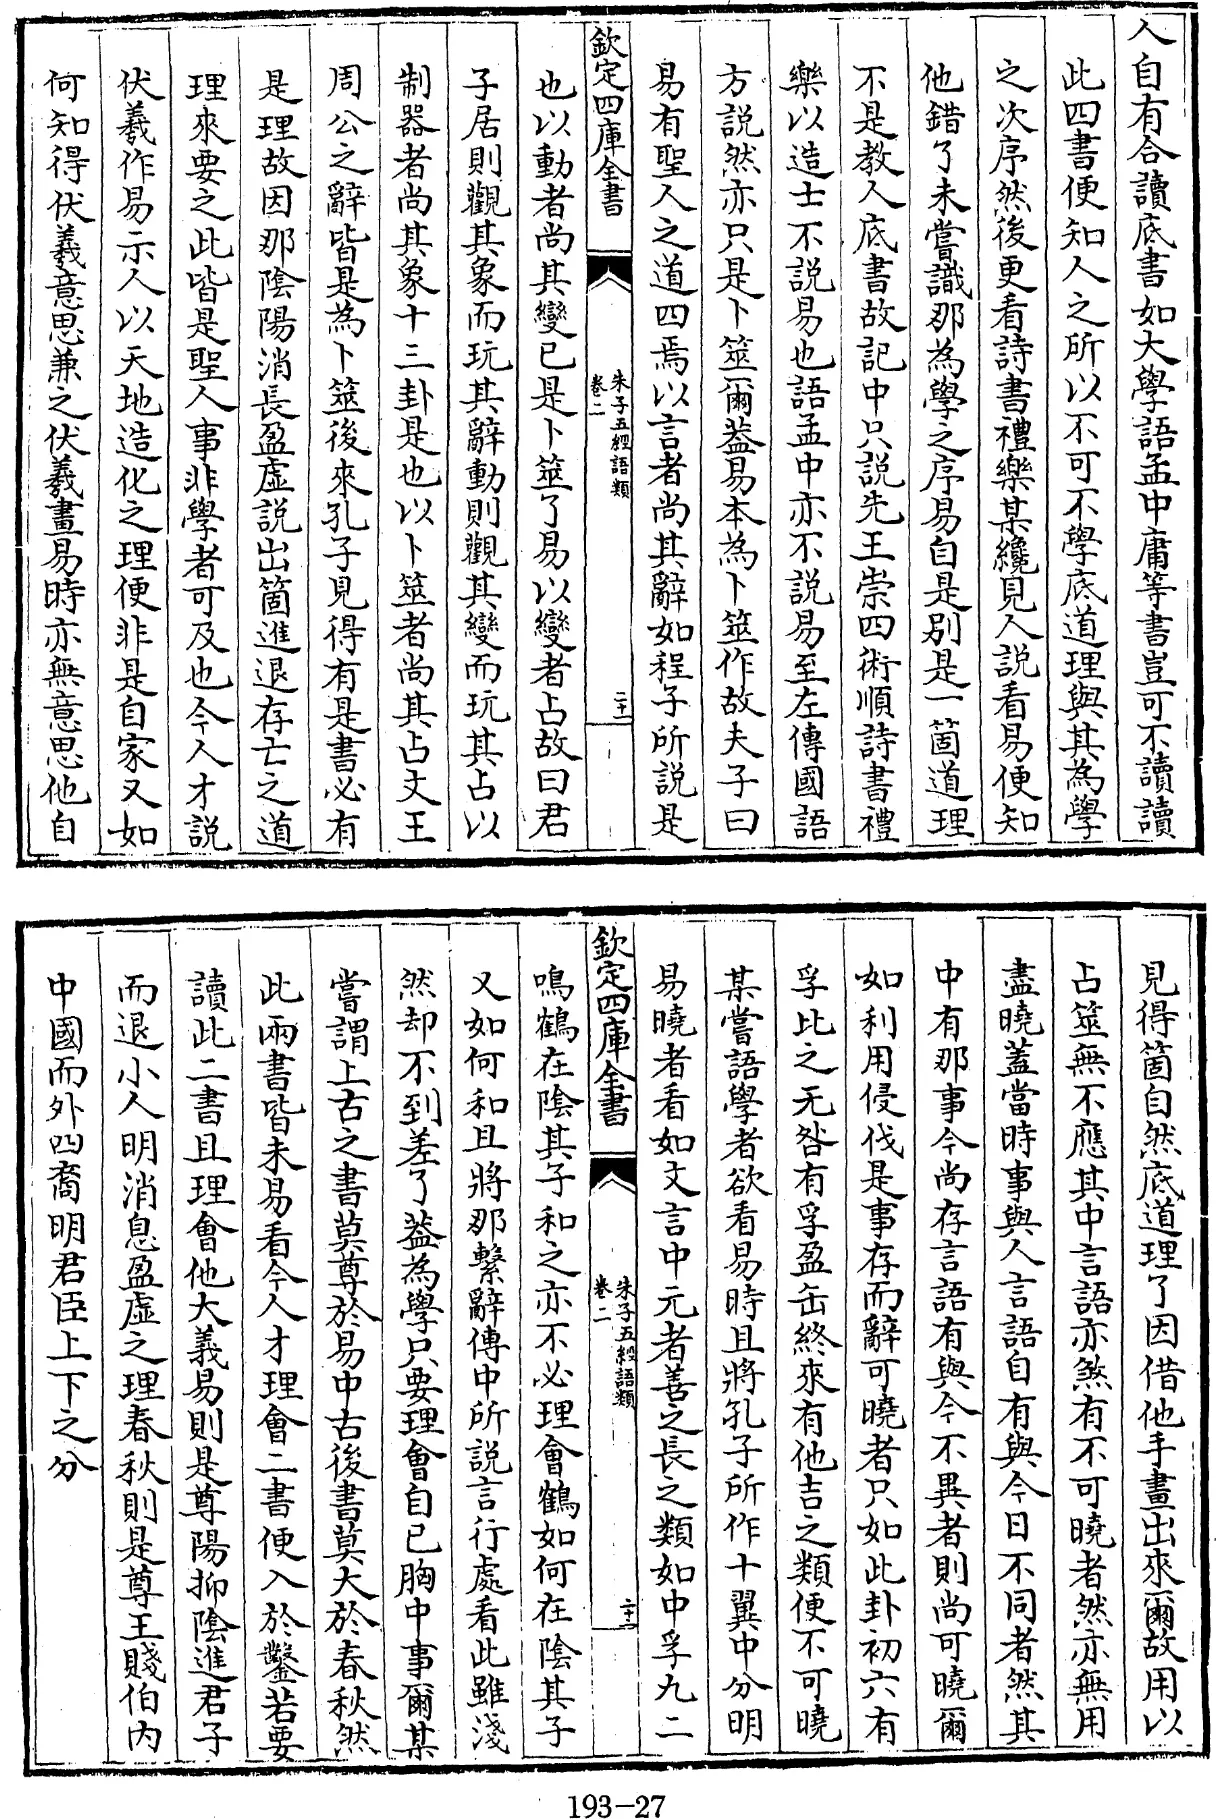 人自有合讀底書如大學語孟中庸等書豈可不讀讀
此四書便知人之所以不可不學底道理與其為學
之次序然後更看詩書禮樂某纔見人說看易便知
他錯了未嘗識那為學之序易自是别是一箇道理
不是教人底書故記中只說先王崇四術順詩書禮
樂以造士不說易也語孟中亦不說易至左傳國語
方說然亦只是卜筮爾葢易本為卜筮作故夫子曰
易有聖人之道四焉以言者尚其辭如程子所說是
欽定四庫全書
朱子五經語類
卷二
二十一
也以動者尚其變已是卜筮了易以變者占故曰君
子居則觀其象而玩其辭動則觀其變而玩其占以
制器者尚其象十三卦是也以卜筮者尚其占文王
周公之辭皆是為卜筮後來孔子見得有是書必有
是理故因那陰陽消長盈虛說出箇進退存亡之道
理來要之此皆是聖人事非學者可及也今人才說
伏羲作易示人以天地造化之理便非是自家又如
何知得伏羲意思兼之伏羲畫易時亦無意思他自
見得箇自然底道理了因借他手畫出來爾故用以
占筮無不應其中言語亦煞有不可曉者然亦無用
盡曉蓋當時事與人言語自有與今日不同者然其
中有那事今尚存言語有與今不異者則尚可曉爾
如利用侵伐是事存而辭可曉者只如此卦初六有
孚比之无咎有孚盈缶終來有他吉之類便不可曉
某嘗語學者欲看易時且將孔子所作十翼中分明
易曉者看如文言中元者善之長之類如中孚九二
欽定四庫全書
朱子五經語類
卷二
二十二
鳴鶴在陰其子和之亦不必理會鶴如何在陰其子
又如何和且將那繫辭傳中所說言行處看此雖淺
然却不到差了葢為學只要理會自已胸中事爾某
嘗謂上古之書莫尊於易中古後書莫大於春秋然
此兩書皆未易看今人才理會二書便入於鑿若要
讀此二書且理會他大義易則是尊陽抑陰進君子
而退小人明消息盈虛之理春秋則是尊王賤伯内
中國而外四裔明君臣上下之分
193-27